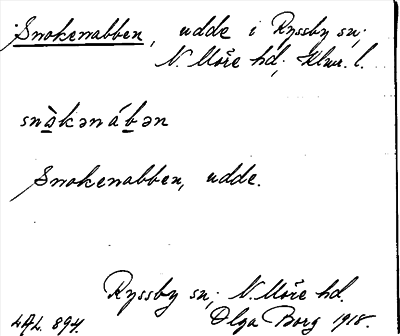 Snokenabben, udde i Ryssby sn;
N. Möre hd; Klm. l.
snòkənábən
Snokenabben, udde.
Ryssby sn; N. Möre hd.
LAL. 894. Olga Borg 1918.